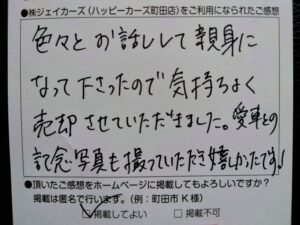 ●㈱ジェイカーズ（ハッピーカーズ町田店）をご利用になられたご感想
色々とお話しして親身に
なって下さったので気持ちよく
売却させていただきました。愛車との
記念写真も撮っていただき嬉しかったです!
●頂いたご感想をホームページに掲載してもよろしいですか？
掲載は匿名で行います。（例：町田市 K様）
□掲載してよい □掲載不可